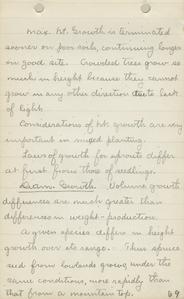 Max. ht. Growth is terminated
sooner on poor soils, continuing longer
on good site. Crowded trees grow so
much in height because they cannot
grow in any other direction due to lack
of light.
Considerations of ht. growth are very
important in mixed planting.
Laws of growth for sprouts differ
at first from those of seedlings.
Diam. Growth. Volume growth
differences are much greater than
differences in weight-production.
A given species differs in height
growth over its range. Thus spruce
seed from lowlands grows, under the
same conditions, more rapidly than
that from a mountain top.
69